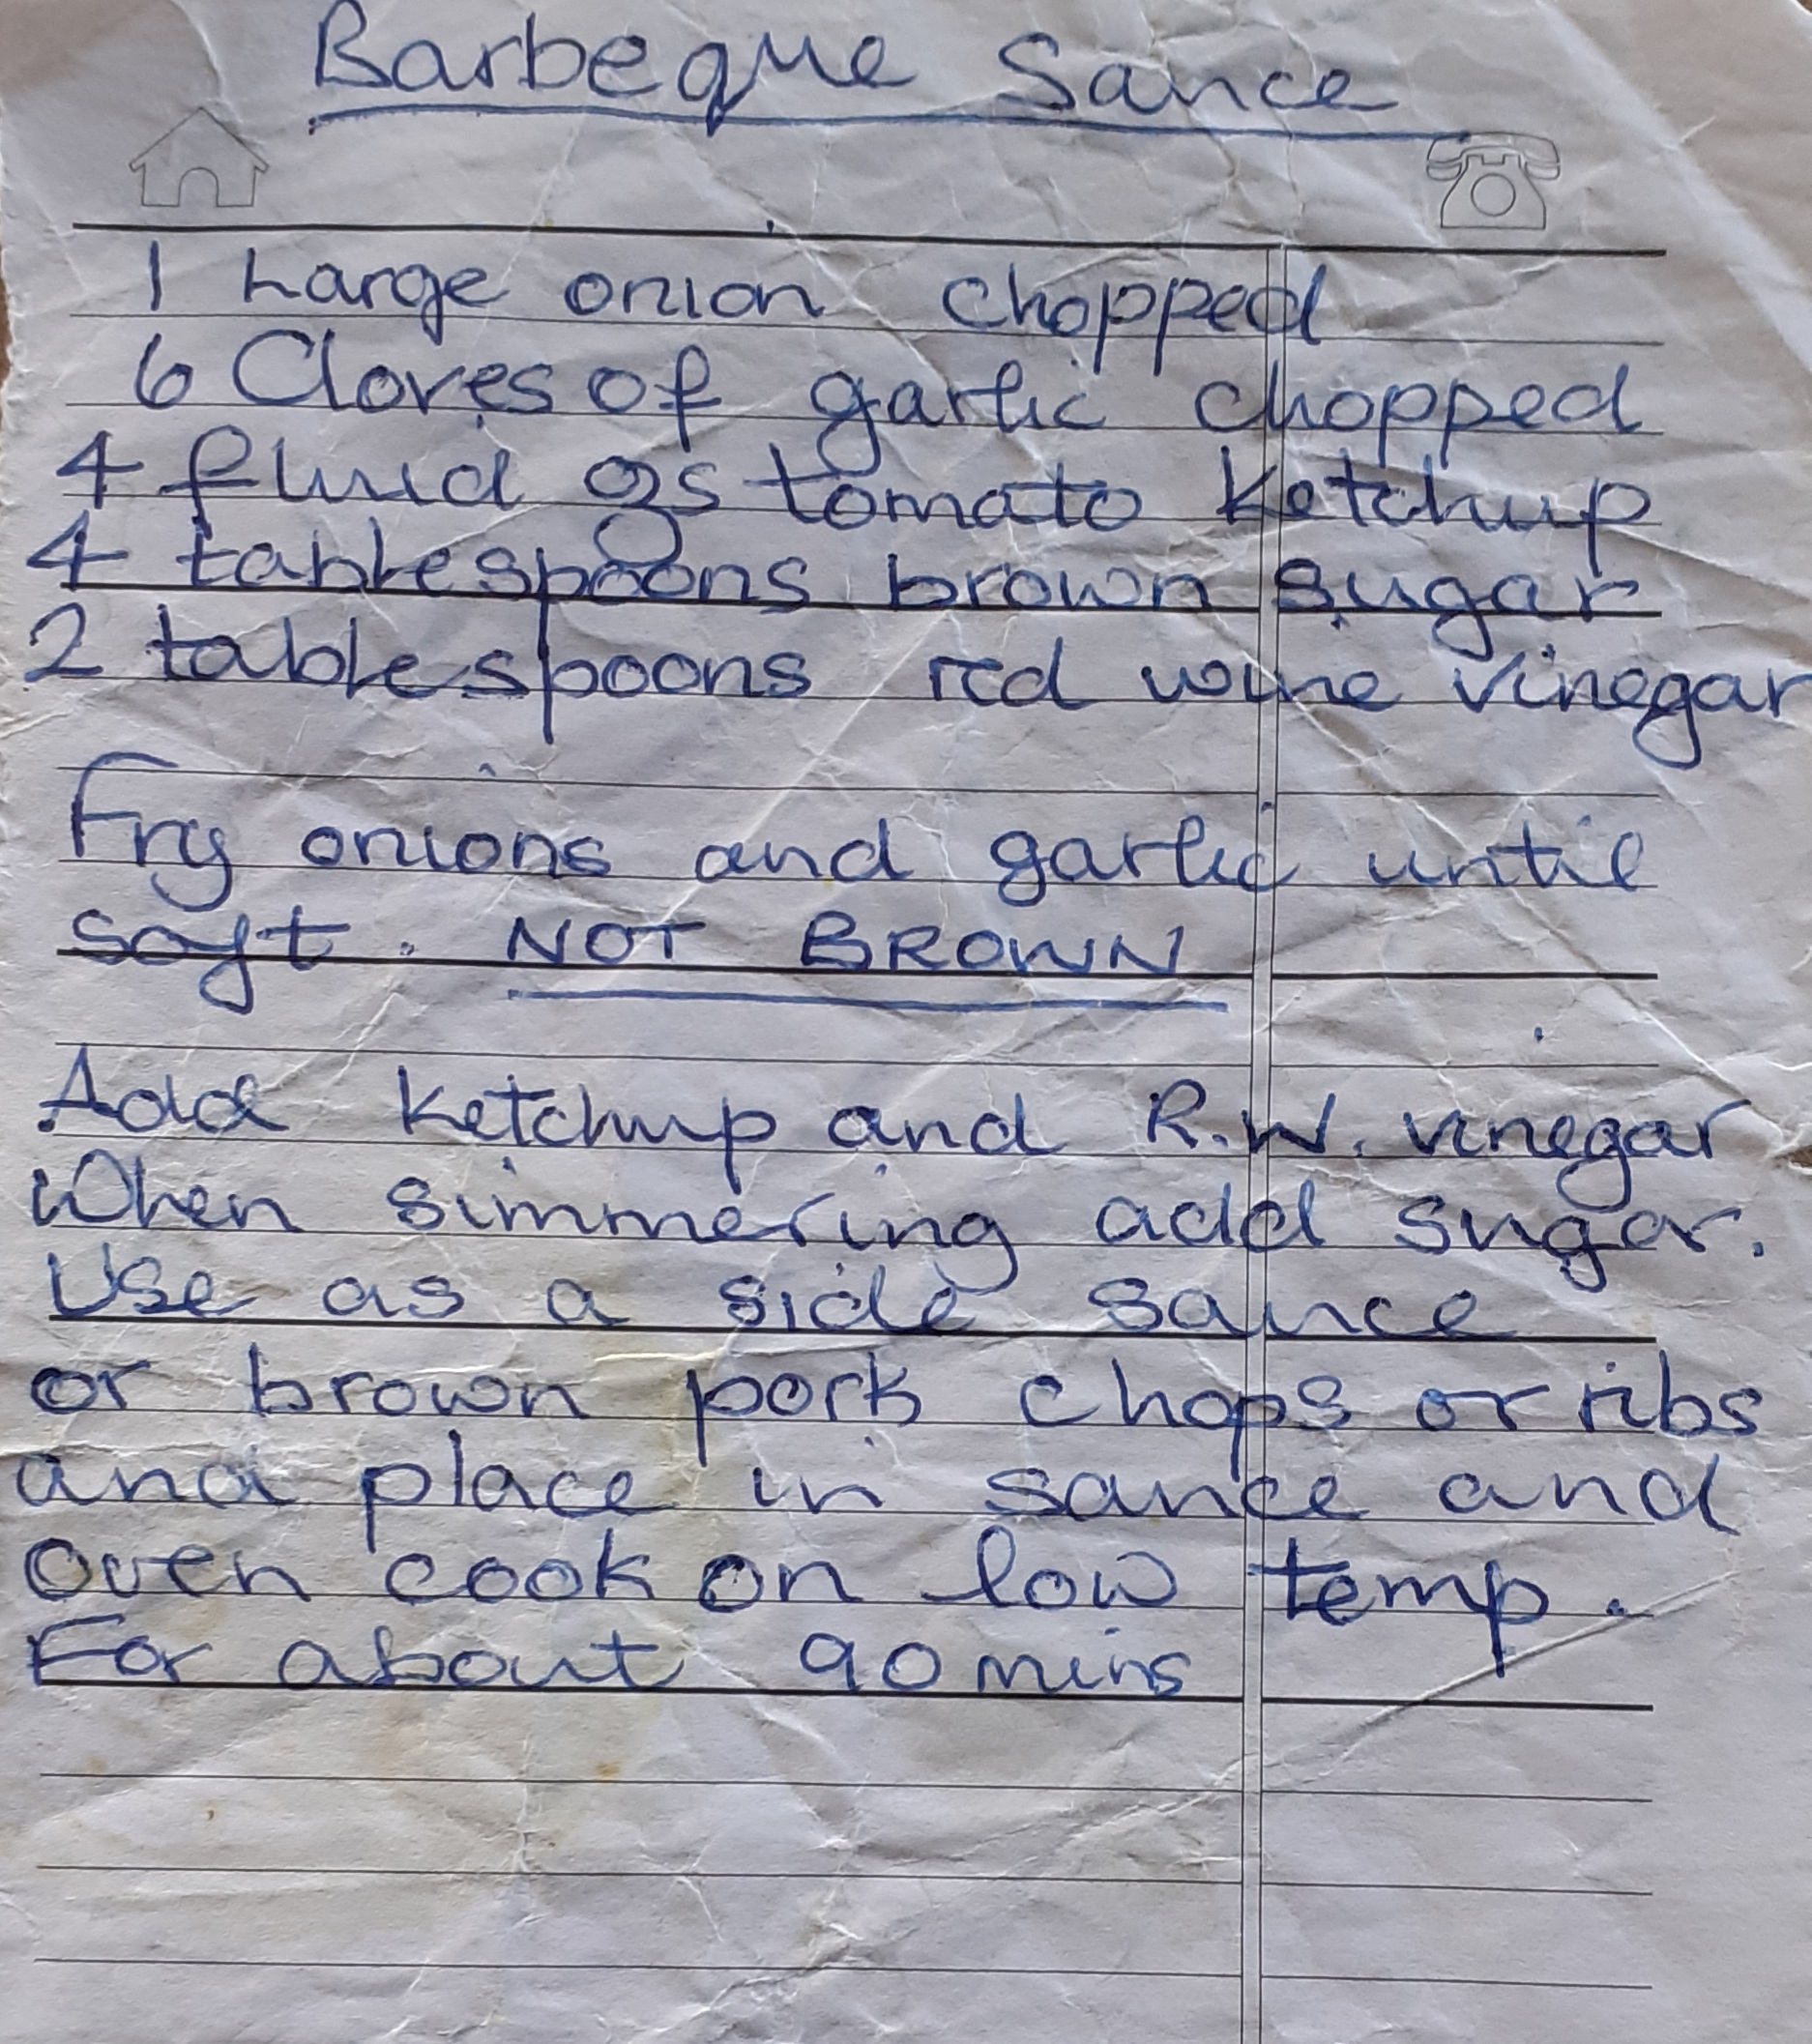 Barbeque Sauce
1 Large onion chopped
6 Cloves of garlic chopped
4 fluid ozs tomato Ketchup
4 tablespoons brown sugar
2 tablespoons red wine vinegar
Fry onions and garlic until
soft. NOT BROWN
Add Ketchup and R.W. vinegar
When simmering add sugar.
Use as a side sauce
or brown pork chops or ribs
and place in sauce and
oven cook on low temp.
For about 90 mins